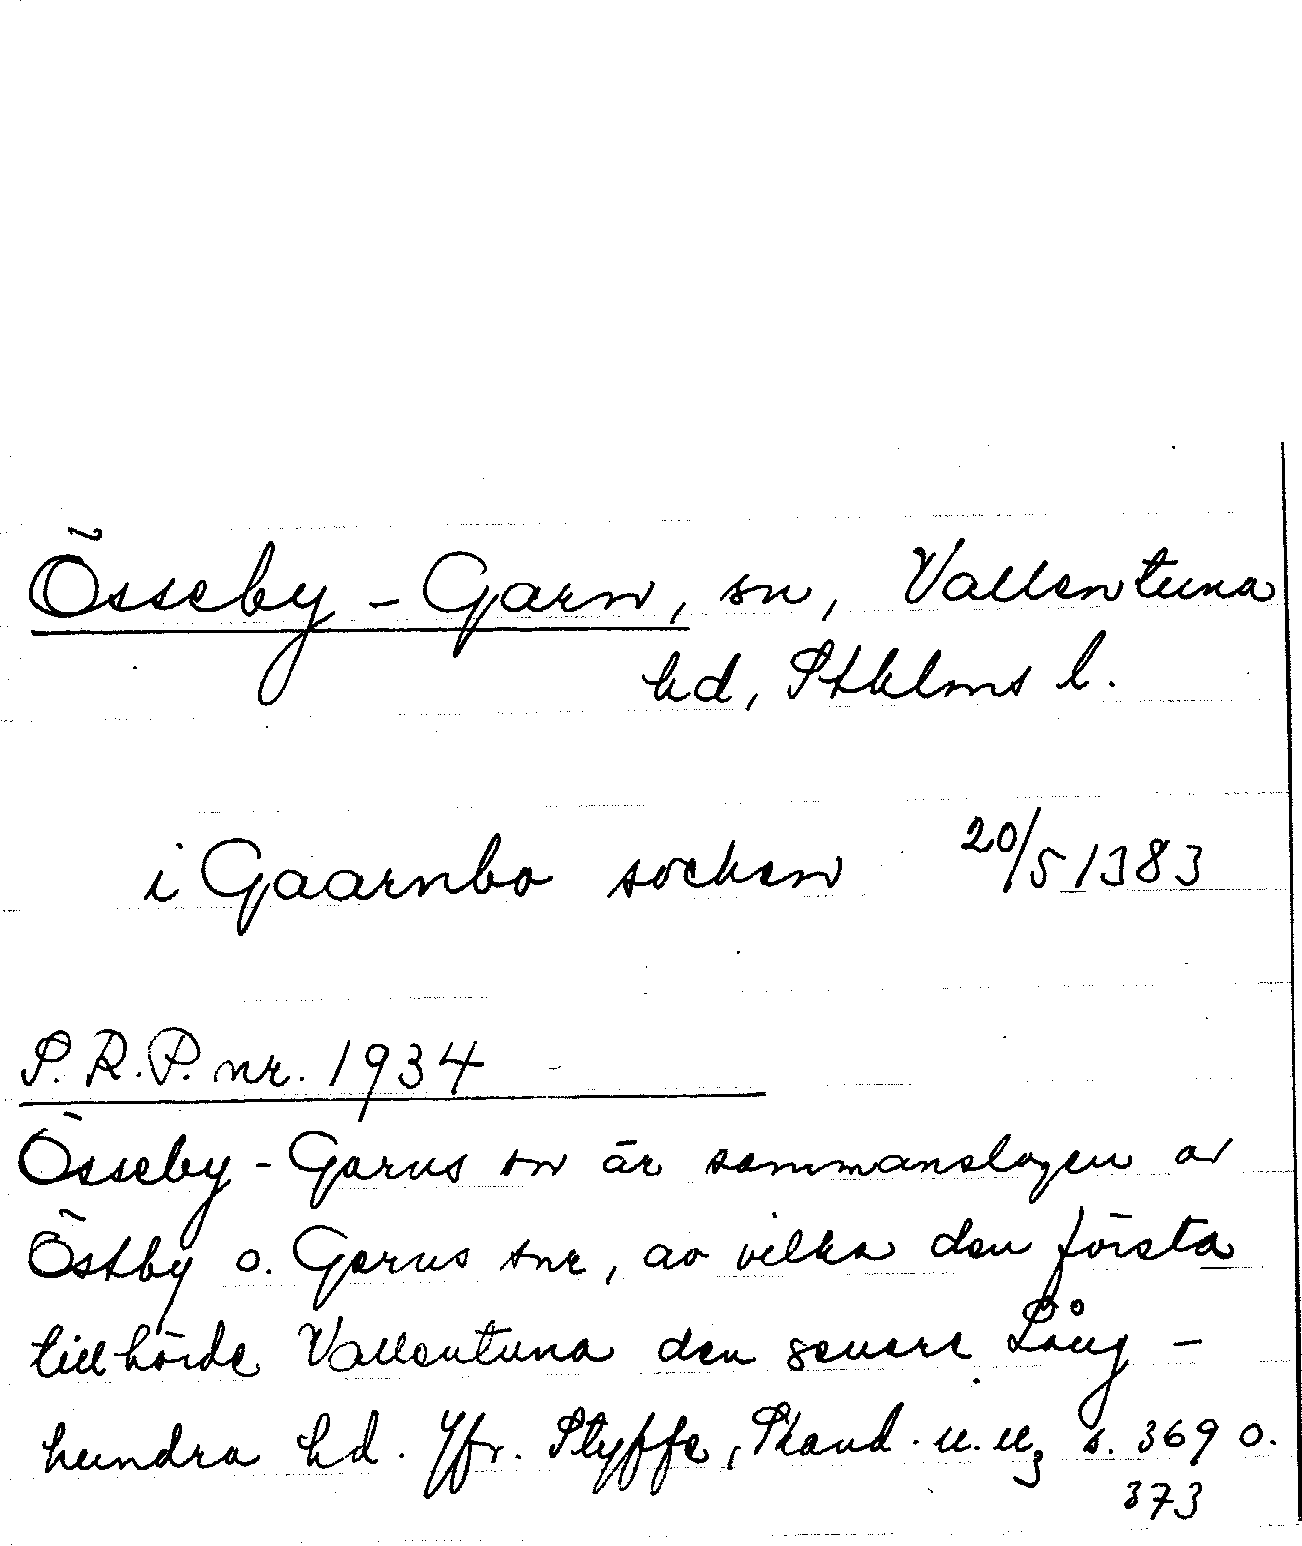 Össeby-Garn, sn, Vallentuna
hd, Sthlms l.
i Gaarnbo socken 20/5 1383
S.R.P. nr. 1934
Össeby-Garns sn är sammanslagen av
Östby o. Garns snr, av vilka den första
tillhörde Vallentuna den senare Lång-
hundra hd. Jfr. Styffe, Skand. u. U3 s. 369 o.
373